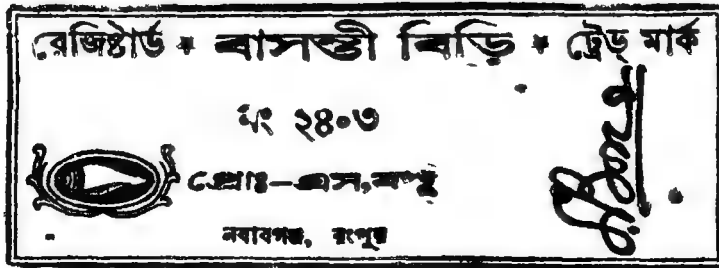 রেজিষ্টার্ড * বাসন্তী বিড়ি * ট্রেড্ মার্ক
নং ২৪০৩
প্রোঃ-এস,
নবাবগঞ্জ, রংপুর